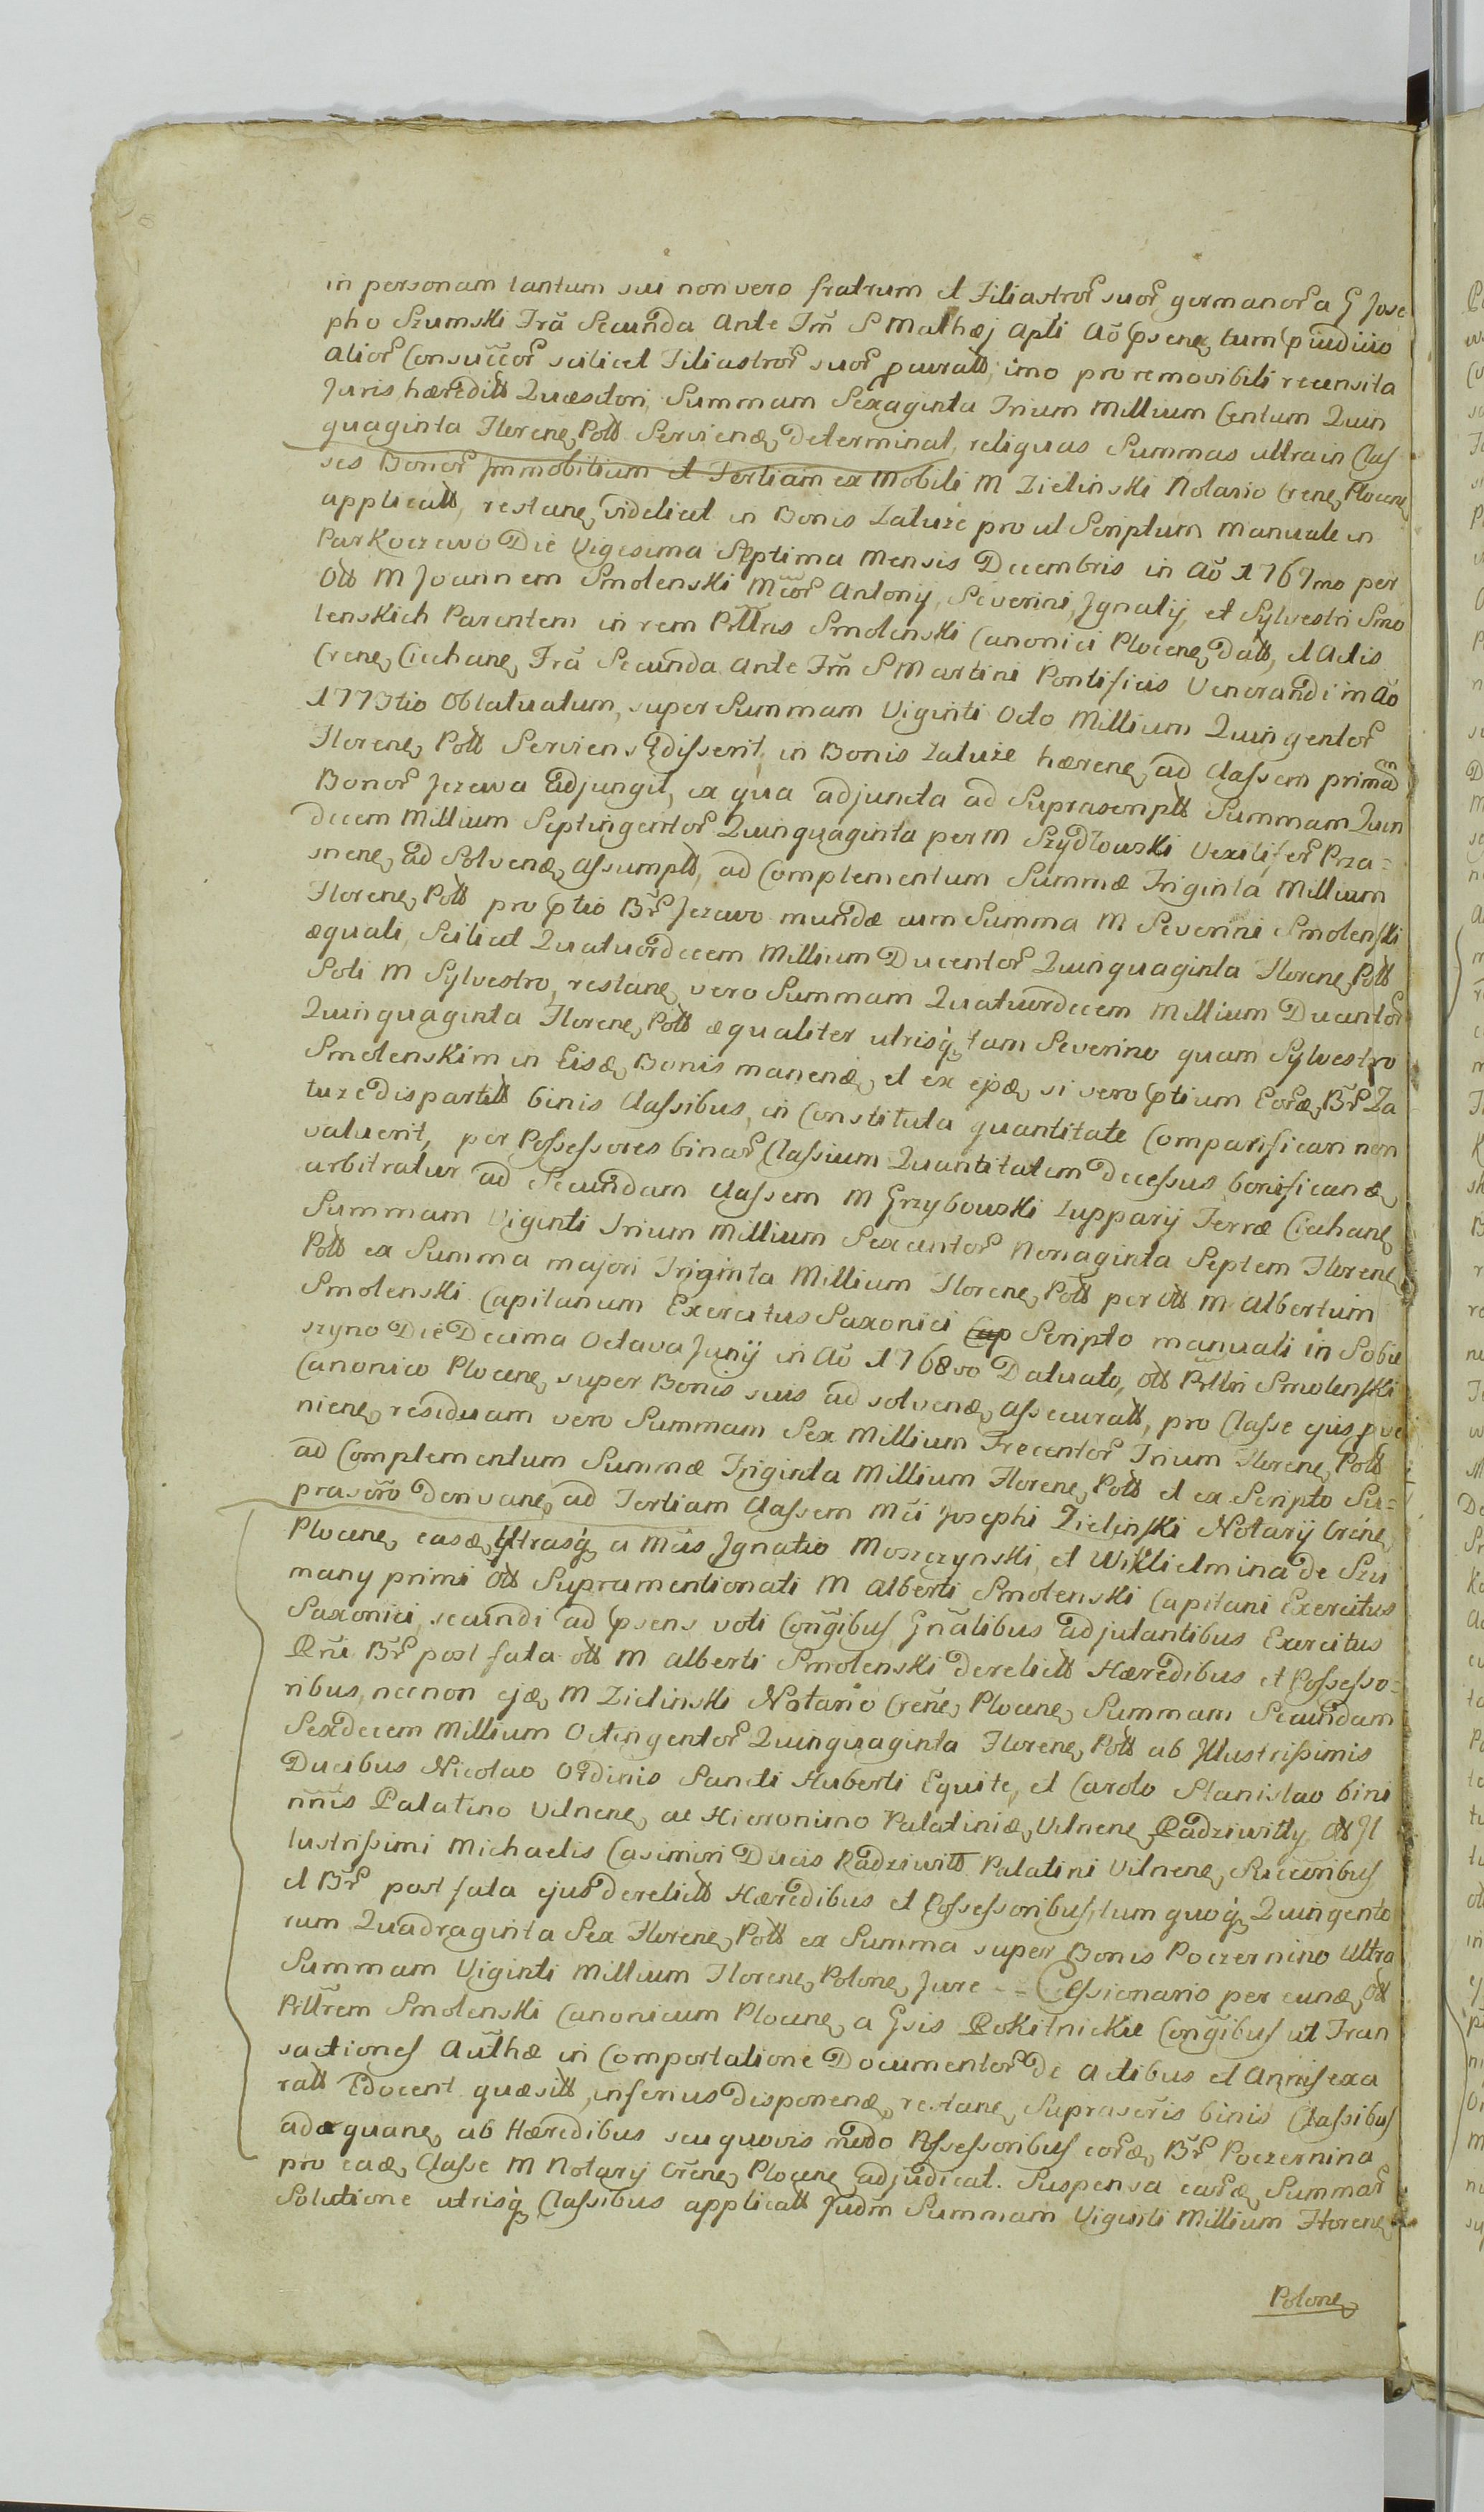 in personam tantum sui non vero fratrum et Filiastror suor germanor a G Jose
pho Szumski Fra Secunda Ante Fm S Mathæj Apli Aō psene tum p iudicio
alior Consuccor scilicet Filiastror suor pcuratt, imo pro removibili recensita
Juris hæreditt Quæsitori, Summam Sexaginta Trium Millium Centum Quin
quaginta Florene Poll Serviene determinat, reliquas Summas ultra in Clas
ses Bonor Immobilium et Tertiam ex Mobili M Zielinski Notario Crene Plocene
applicatt, restane videlicet in Bonis Zaluże pro ut Scriptum Manuale in
Parkoczewo Die Vigesima Septima Mensis Decembris in Aō 1767mo per
Ott M Joannem Smolenski Mcor Antonij, Severini, Jgnatij, et Sylvestri Smo
lenskich Parentem in rem Pttris Smolenski Canonici Plocene Datt, et Actis
Crene Ciechane Fra Secunda Ante Fm S Martini Pontificis Venerandi in Aō
1773tio Oblatuatum, super Summam Viginti Octo Millium Quingentor
Florene Poll Serviens edisserit, in Bonis Zaluże hærene ad Classem primam
Bonor Jezewa adjungit, ex qua adjuncta ad Suprascriptt Summam Quin
decem Millium Septingentor Quinquaginta per M Szydlowski Vexilifer Prza=
snene ad Solvene assumptt, ad Complementum Summæ Triginta Millium
Florene Poll pro ptio Br Jezewo mundæ cum Summa M Severini Smolenski
æquali, Scilicet Quatuordecem Millium Ducentor Quinquaginta Florene Poll
Soli M Sylvestro, restane vero Summam Quatuordecem Millium Ducentor
Quinquaginta Florene Poll æqualiter utrisq tam Severino quam Sylvestro
Smolenskim in Eisdæ Bonis manenæ, et ex ejsdæ si vero ptium Eordæ Br Za
luże dispartitt binis Classibus, in Constituta quantitate Comparificari non
valuerit, per Possessores binar Classium Quantitatem decessus bonificandæ
arbitratur ad Secundam Classem M Grzybowski Zupparij Terræ Ciechane
Summam Viginti Trium Millium Sexcentor Nonaginta Septem Florene
Poll ex Summa majori Triginta Millium Florene Poll per Ott M Albertum
Smolenski Capitanum Exercitus Saxonici Scripto manuali in Sobie
szyno Die Decima Octava Junij in Aō 1768vo Datuato, Ott Pttri Smolenski
Canonico Plocene super Bonis suis ad solvene assecuratt, pro Classe ejus pve
niene residuam vero Summam Sex Millium Trecentor Trium Florene Poll
ad Complementum Summæ Triginta Millium Florene Poll et ex Scripto Su=
prascro derivane ad Tertiam Classem Mci Josephi Zielinski Notarij Crene
Plocene easdæ utrasq a Mcis Jgnatio Moszczynski, et Wilhelmina de Szu
many primi Ott Supramentionati M Alberti Smolenski Capitani Exercitus
Saxonici, secundi ad psens voti Congibus Gnalibus adjutantibus Exercitus
Rni Br post fata ott M Alberti Smolenski derelictt Hæredibus et Possesso=
ribus, necnon ejdæ M Zielinski Notario Crene Plocene Summam Secundam
Sexdecem Millium Octingentor Quinquaginta Florene Poll ab Jllustrissimis
Ducibus Nicolao Ordinis Sancti Huberti Equite, et Carolo Stanislao bini
nnis Palatino Vilnene ac Hieronimo Palatinidæ Vilnene Radziwilly Ott Jl
lustrissimi Michaelis Casimiri Ducis Radziwill Palatini Vilnene Succoribus
et Br post fata ejus derelictt Hæredibus et Possessoribus, tum quoq Quingento
rum Quadraginta Sex Florene Poll ex Summa super Bonis Poczernino Ultra
Summam Viginti Millium Florene Polone Jure -= Cessionario per eundæ Ott
Pttrem Smolenski Canonicum Plocene a Gsis Rokitnickie Congibus ut Tran
sactiones Authæ in Comportatione Documentor De Actibus et Annis exa
ratt Edocent quæsitt, inferius disponenæ restane Suprascris binis Classibus
adæquane ab Hæredibus seu quovis modo Possessoribus eordæ Br Poczernina
pro eadæ Classe M Notarij Crene Plocene adjudicat. Suspensa eardæ Summar
Solutione utrisq Classibus applicatt Judm Summam Viginti Millium Florene
Polone